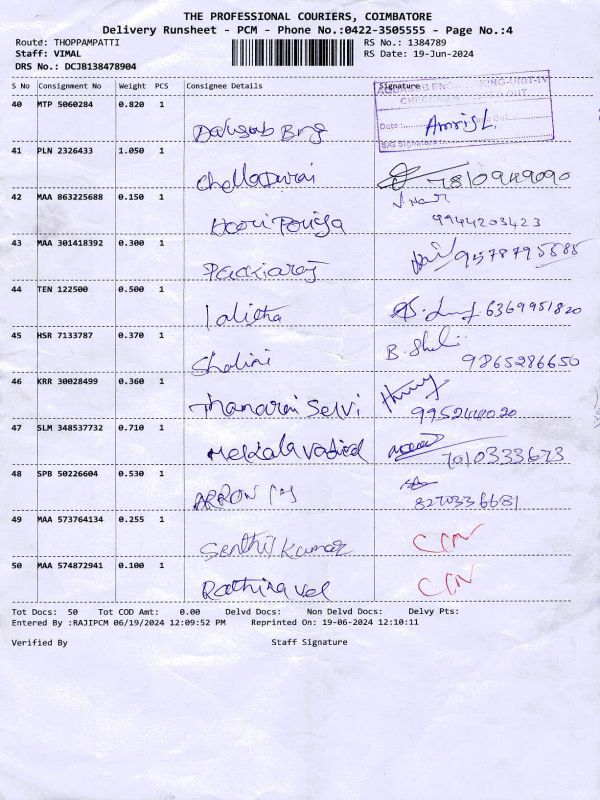 THE PROFESSIONAL COURIERS, COIMBATORE
Delivery Runsheet - PCM - Phone No.:0422-3505555 - Page No.:4
Route: THOPPAMPATTI RS No.: 1384789
Staff: VIMAL RS Date: 19-Jun-2024
DRS No.: DCJB138478904
S No Consignment No Weight PCS Consignee Details Signature
40 MTP 5060284 0.820 1
Date :
S/G Signature
41 PLN 2326433 1.050 1
ChellaDurai
42 MAA 863225688 0.150 1
9944203423
43 MAA 301418392 0.300 1
Packiaraj 9578795585
44 TEN 122500 0.500 1
lalitha 6369951820
45 HSR 7133787 0.370 1
Shalini 9865286650
46 KRR 30028499 0.360 1
Selvi
47 SLM 348537732 0.710 1
7010333673
48 SPB 50226604 0.530 1
ARRON 8270336681
49 MAA 573764134 0.255 1
Senthil Kumar
50 MAA 574872941 0.100 1
Rathinavel
Tot Docs: 50 Tot COD Amt: 0.00 Delvd Docs: Non Delvd Docs: Delvy Pts:
Entered By :RAJIPCM 06/19/2024 12:09:52 PM Reprinted On: 19-06-2024 12:10:11
Verified By Staff Signature